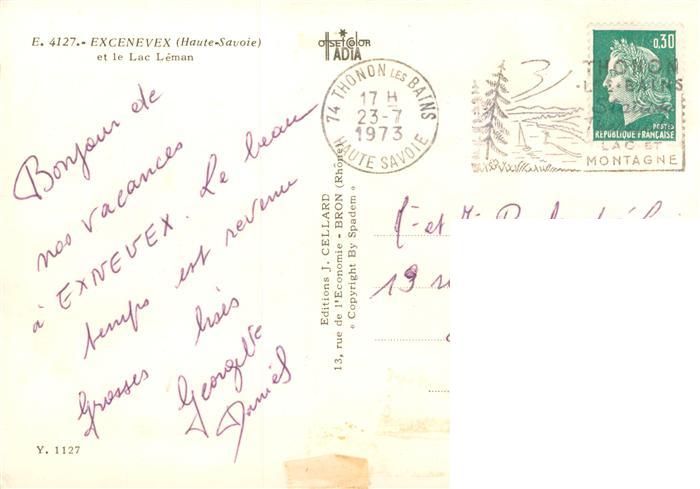 E. 4127.- EXCENEVEX (Haute-Savoie)
et le Lac Léman
Bonjour de
nos vacances
à EXNEVEX. Le beau
temps est revenu
Grosses bises
Georgette
Daniel
Y. 1127
OFFSET COLOR
IADIA
Editions J. CELLARD
13, rue de l'Economie - BRON (Rhône)
« Copyright By Spadem »
74 THONON LES BAINS
17 H
23-7
1973
HAUTE SAVOIE
THONON
LES BAINS
LAC ET
MONTAGNE
0,30
POSTES
REPUBLIQUE FRANÇAISE
et
19